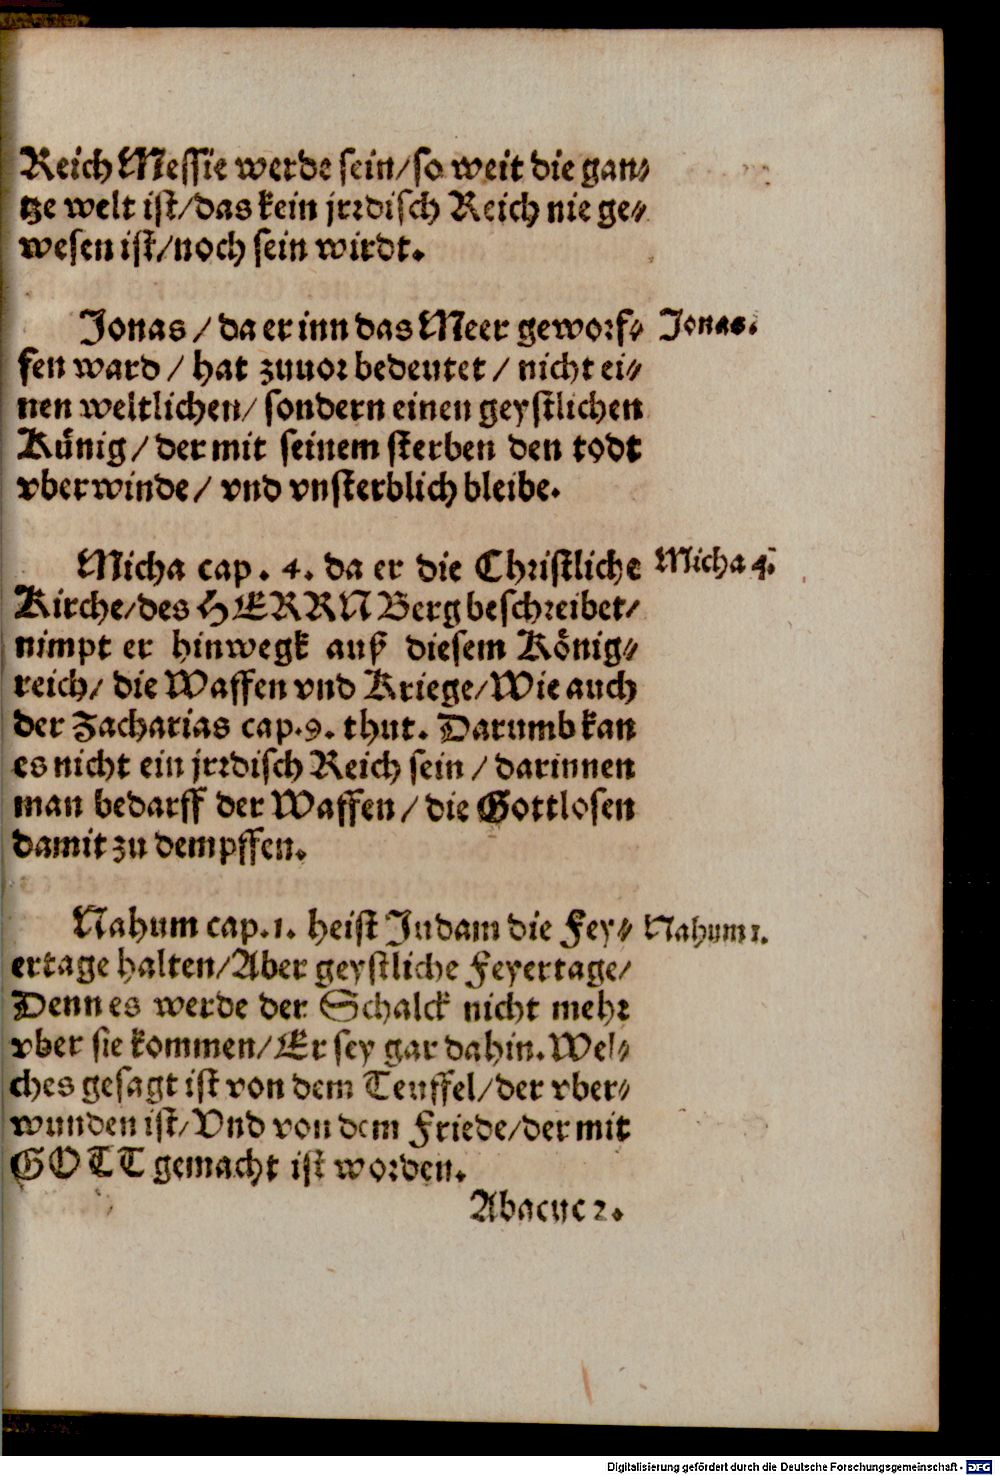 Reich Messie werde sein/so weit die gan⸗
tze welt ist/das kein jrrdisch Reich nie ge⸗
wesen ist/noch sein wirdt.
Jonas / da er inn das Meer geworf⸗ Jonas.
fen ward / hat zuuor bedeutet / nicht ei⸗
nen weltlichen/ sondern einen geystlichen
Künig / der mit seinem sterben den todt
vberwinde / vnd vnsterblich bleibe.
Micha cap. 4. da er die Christliche Micha 4.
Kirche/des HERRN Berg beschreibet/
nimpt er hinwegk auß diesem König⸗
reich/ die Waffen vnd Kriege/Wie auch
der Zacharias cap.9. thut. Darumb kan
es nicht ein jrrdisch Reich sein / darinnen
man bedarff der Waffen / die Gottlosen
damit zu dempffen.
Nahum cap.1. heist Judam die Fey⸗ Nahum 1.
ertage halten/Aber geystliche Feyertage/
Denn es werde der Schalck nicht mehr
vber sie kommen/Er sey gar dahin. Wel⸗
ches gesagt ist von dem Teuffel/der vber⸗
wunden ist/Vnd von dem Friede/der mit
GOTT gemacht ist worden.
Abacuc 2.
Digitalisierung gefördert durch die Deutsche Forschungsgemeinschaft - DFG